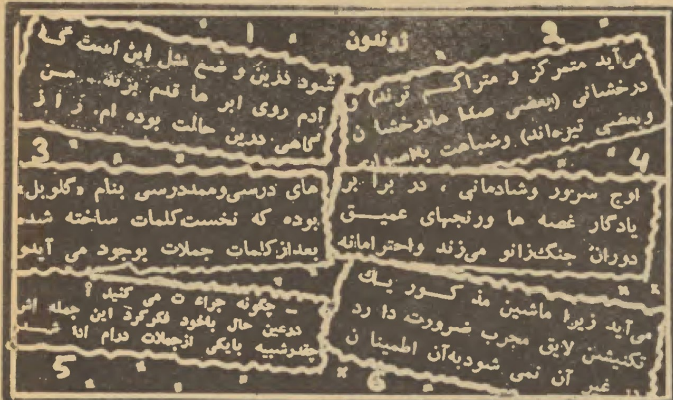 ژوندون
1
شود درین و ضع مثل این است که
آدم روی ابر ها قدم بزند. من
گاهی درین حالت بوده ام. ز ا ز
2
می‌آید متمرکز و متراکم ترند) و
درخشانی (بعضی صدا هادرخشا ن
وبعضی تیزه‌اند) وشباهت به
3
های درسی‌وممددرسی بنام «گلوبل»
بوده که نخست‌کلمات ساخته شده
بعداز‌کلمات جملات بوجود می آیدو
4
اوج سرور وشادمانی ، در برا بر
یادگار غصه ها ورنجهای عمیق
دوران جنگ‌زانو می‌زند واحترامانه
5
ـ چگونه جراء ت می کنید ؟
درعین حال باخود فکرکرد این جمله اش
چقدرشبیه بایکی ازجملات درام
6
می‌آید زیرا ماشین مذ کور یک
تکنیشن لایق مجرب ضرورت دا رد
در غیر آن نمی شودبه‌آن اطمینا ن